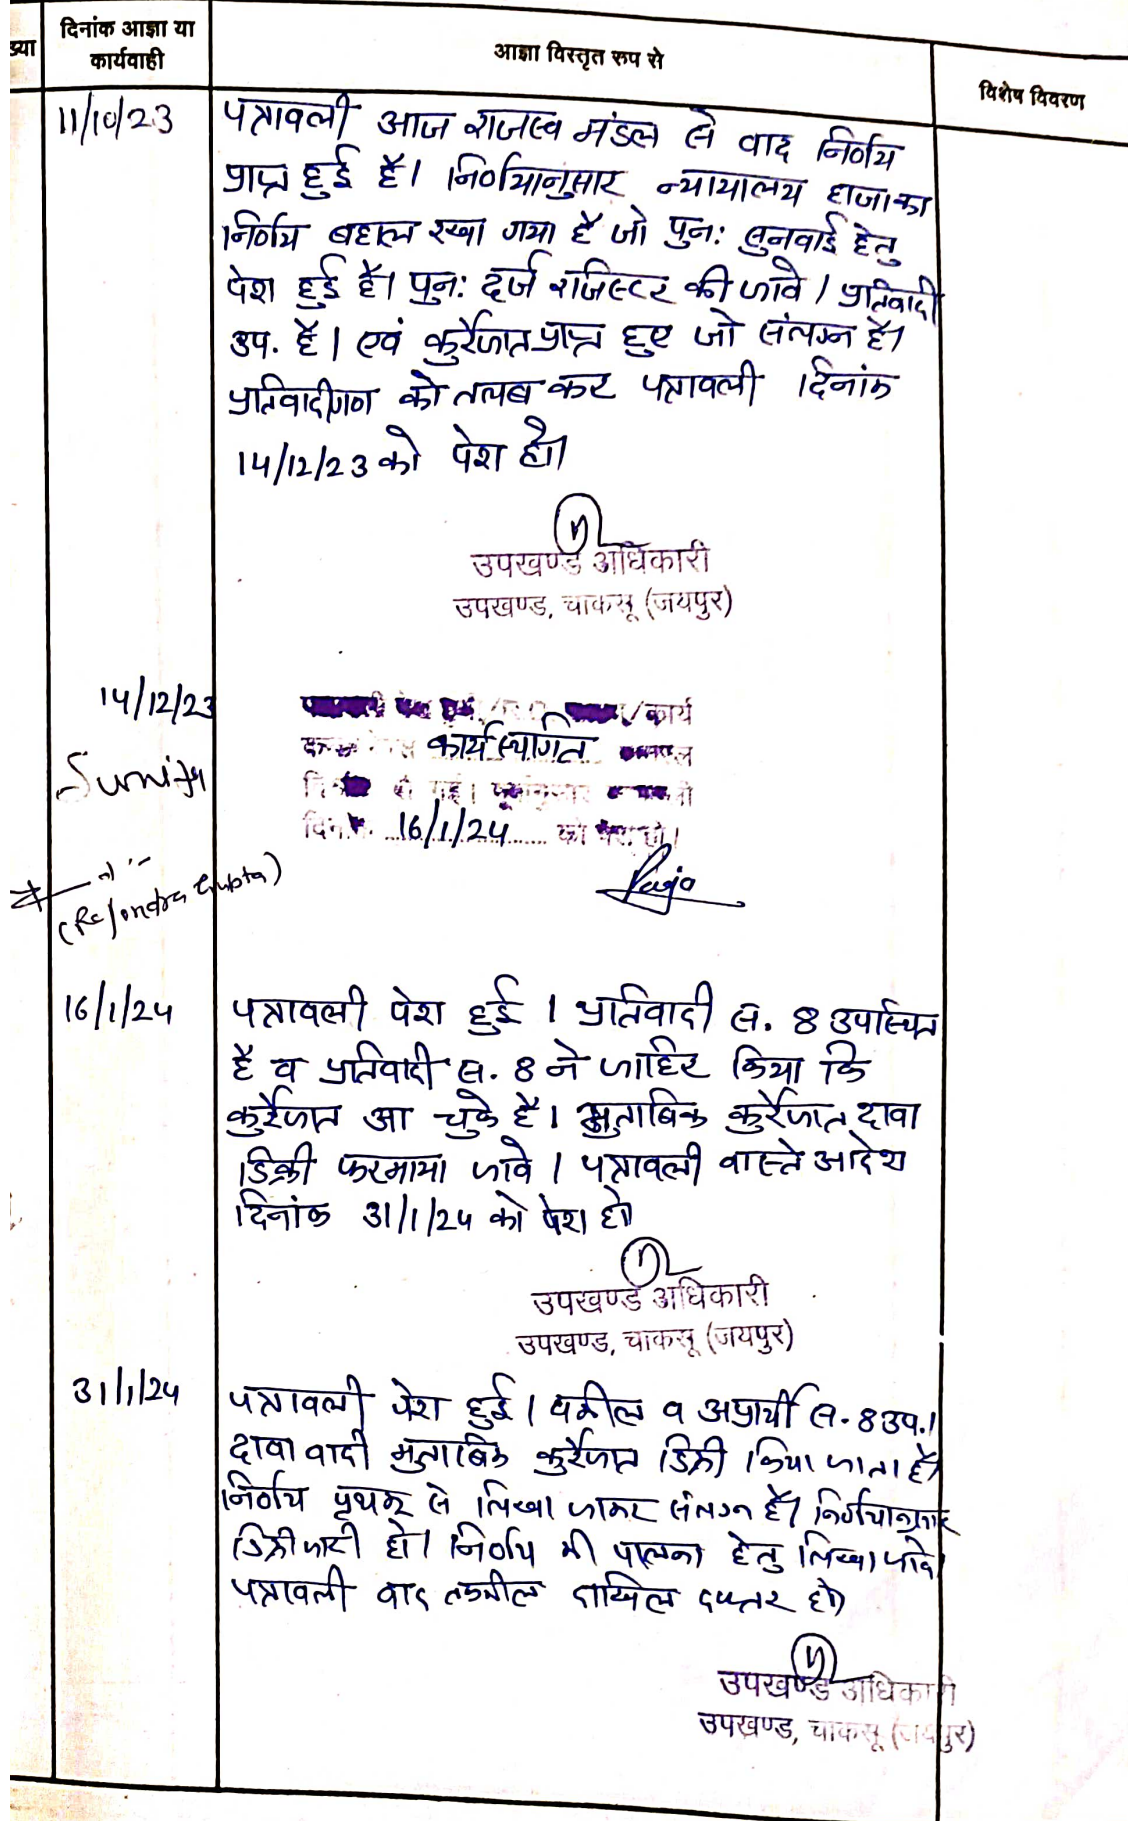 ख्या
दिनांक आज्ञा या
कार्यवाही
आज्ञा विस्तृत रूप से
विशेष विवरण
11/10/23
पत्रावली आज राजस्व मंडल से वाद निर्णय
प्राप्त हुई है। निर्णयानुसार न्यायालय हाजा का
निर्णय बहाल रखा गया है जो पुनः सुनवाई हेतु
पेश हुई है। पुनः दर्ज राजिस्टर की जावे। प्रतिवादी
उप. है। एवं कुर्रेजात प्राप्त हुए जो संलग्न है।
प्रतिवादीगण को तलब कर पत्रावली दिनांक
14/12/23 को पेश हो।
उपखण्ड अधिकारी
उपखण्ड, चाकसू (जयपुर)
14/12/23
/कार्य
कार्य स्थगित
Sunita
दिनांक 16/1/24 को पेश हो।
(Rajendra Gupta)
16/1/24
पत्रावली पेश हुई। प्रतिवादी स. 8 उपस्थित
है व प्रतिवादी स. 8 ने जाहिर किया कि
कुर्रेजात आ चुके है। मुताबिक कुर्रेजात दावा
डिक्री फरमाया जावे। पत्रावली वास्ते आदेश
दिनांक 31/1/24 को पेश हो
उपखण्ड अधिकारी
उपखण्ड, चाकसू (जयपुर)
31/1/24
पत्रावली पेश हुई। वकील व अप्रार्थी स. 8 उप.।
दावा वादी मुताबिक कुर्रेजात डिक्री किया जाता है।
निर्णय पृथक से लिखा जाकर संलग्न है। निर्णयानुसार
डिक्री जारी हो। निर्णय की पालना हेतु लिखा जावे।
पत्रावली बाद तकमील दाखिल दफ्तर हो
उपखण्ड अधिकारी
उपखण्ड, चाकसू (जयपुर)